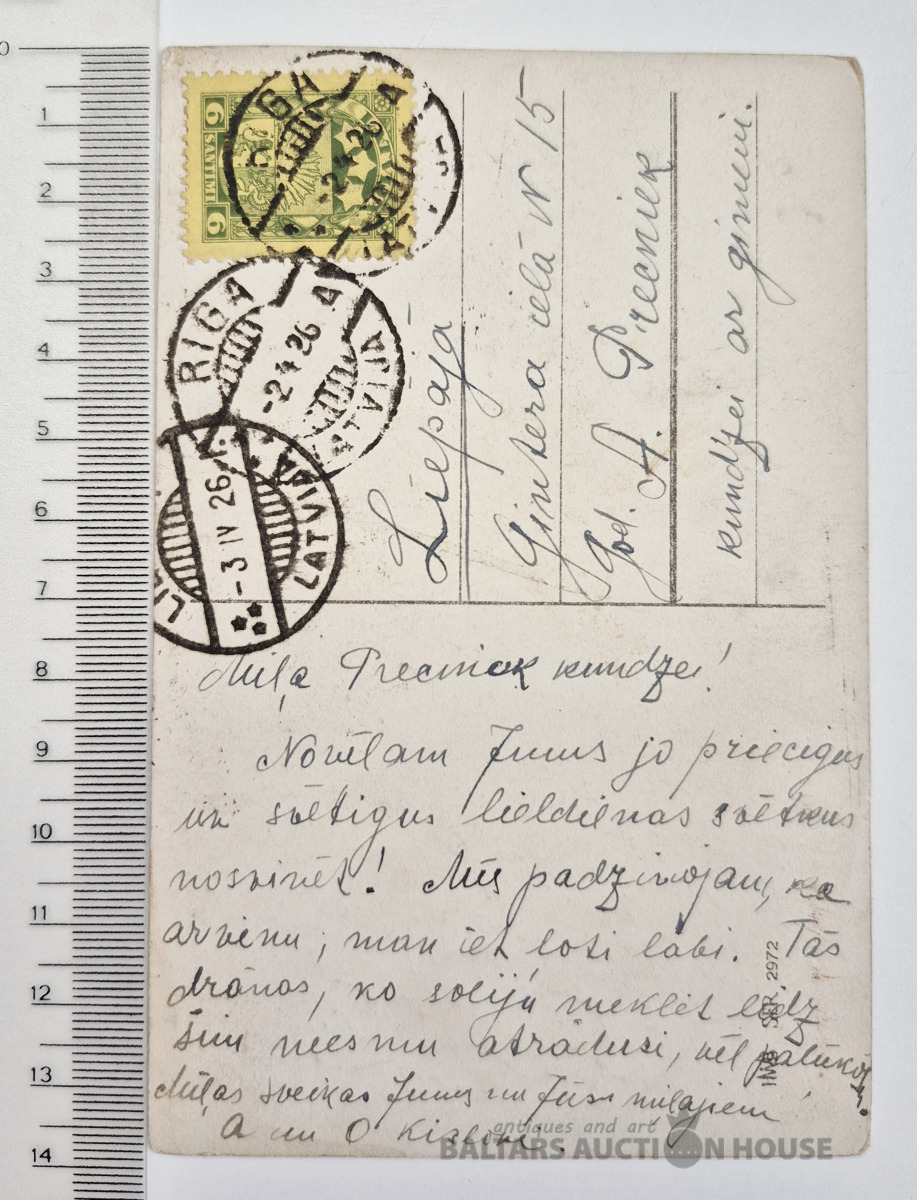 0
1
2
3
4
5
6
7
8
9
10
11
12
13
14
6 SANTIMS 6
RIGA A
-2.4.26
LATVIJA
RIGA A
-2.4.26
LATVIJA
-3 IV 26
LATVIJA
Liepaja
Gintera ielā N 15
God. A. Preeniek
kundzei ar ģimeni.
Mīļa Preeniek kundzei!
Novēlam Jums jo priecigus
un svētigus lieldienas svētkus
nosvinēt! Mēs padzivojam, kā
arvienu, man iet loti labi. Tās
drānas, ko soliju meklēt lidz
šim neesmu atradusi, vēl palūkoš
Mīļas sveikas Jums un Jūsu mīlajiem!
A un O
IMB SER. 2972
antiques and art
BALTARS AUCTION HOUSE